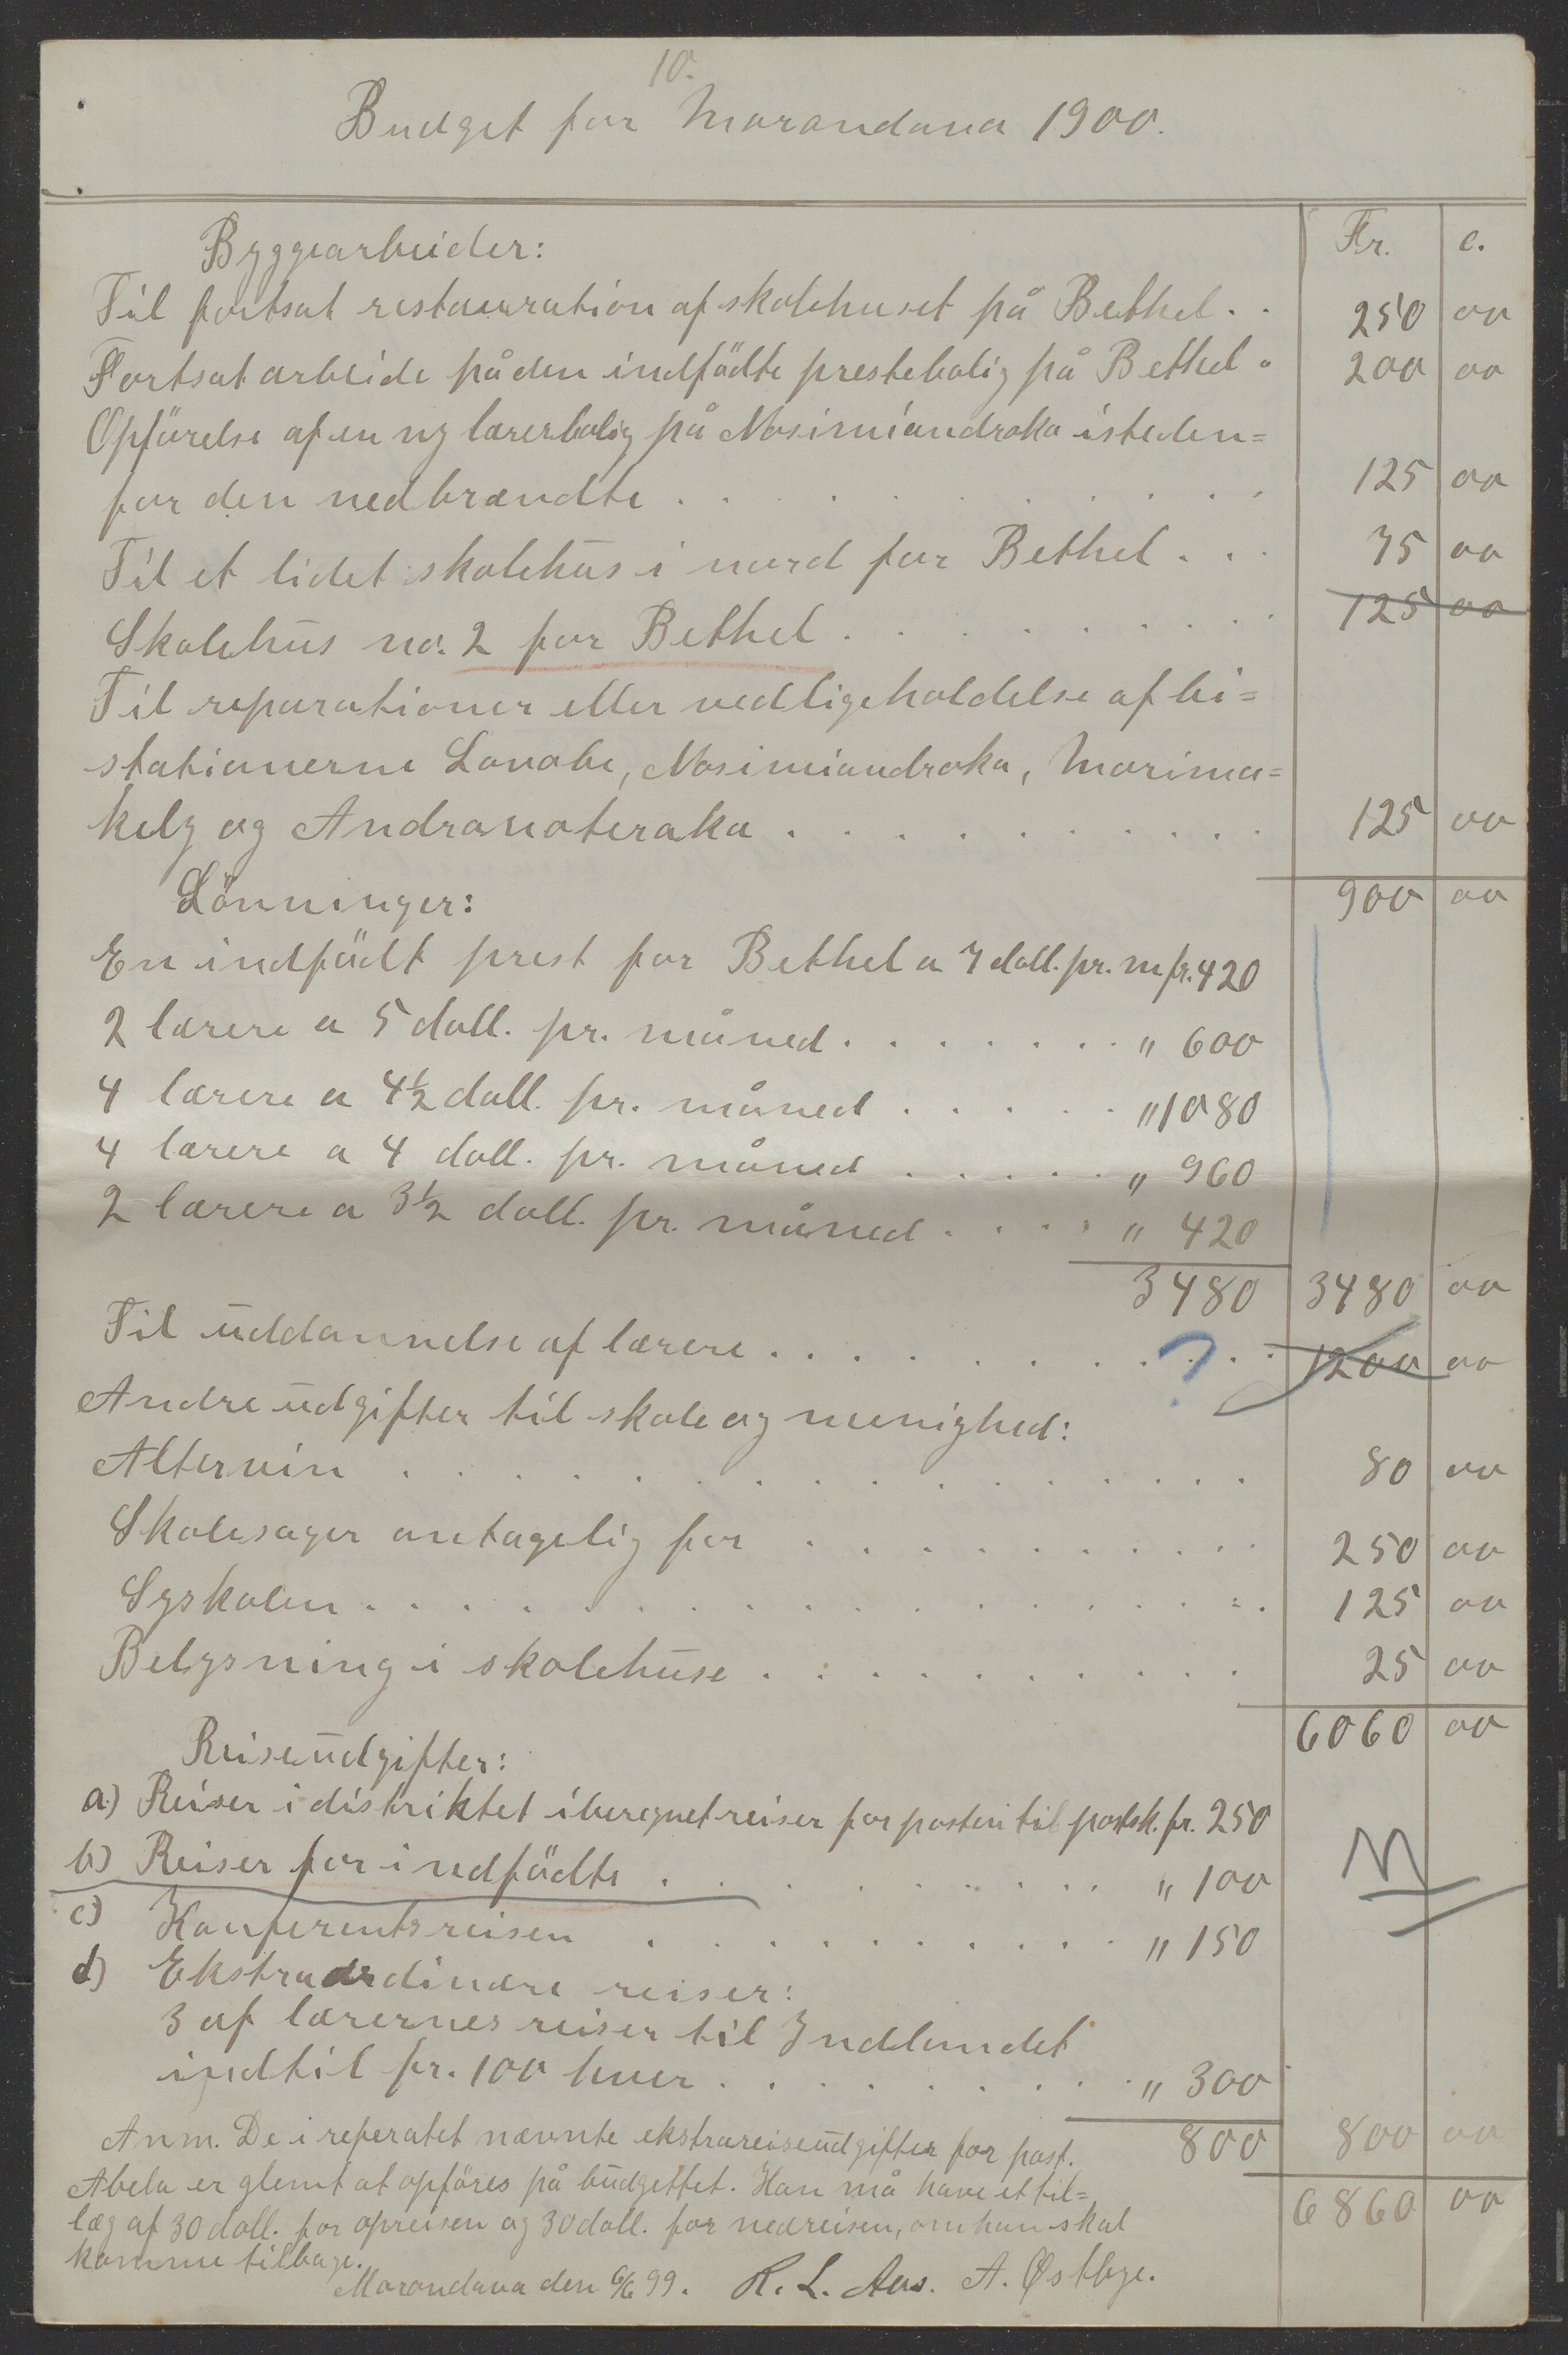 10.
Budget for Morondava 1900.
Fr. c.
Byggearbeider:
Til fortsat restauration af skolehuset på Bethel . . 250 00
Fortsat arbeide på den indfödte prestebolig på Bethel . 200 00
Opförelse af en ny lærerbolig på Nosimiandroka isteden=
for den nedbrændte . . . . . . . . . . 125 00
Til et lidet skolehus i nord for Bethel . . . 75 00
Skolehus no. 2 for Bethel . . . . . . . . . 125 00
Til reparationer eller vedligeholdelse af bi=
stationerne Lovobe, Nosimiandroka, Marima=
kely og Andranoteraka . . . . . . . . . 125 00
900 00
Lönninger:
En indfödt prest for Bethel a 7 doll. pr. m fr. 420
2 lærere a 5 doll. pr. måned . . . . . . . " 600
4 lærere a 4½ doll. pr. måned . . . . . " 1080
4 lærere a 4 doll. pr. måned . . . . . " 960
2 lærere a 3½ doll. pr. måned . . . . " 420
3480 3480 00
Til uddannelse af lærere . . . . . . . . . ? 1200 00
Andre udgifter til skole og menighed:
Altervin . . . . . . . . . . . . . . 80 00
Skolesager antagelig for . . . . . . . . . 250 00
Syskolen . . . . . . . . . . . . . . . 125 00
Belysning i skolehuse . . . . . . . . . 25 00
6060 00
Reiseudgifter:
a) Reiser i distriktet iberegnet reiser for posten til postsk. fr. 250
b) Reiser for indfödte . . . . . . . . . " 100
c) Konferentsreisen . . . . . . . . . " 150
d) Ekstraordinære reiser:
3 af lærernes reiser til Indlandet
indtil fr. 100 hver . . . . . . . . " 300
800 800 00
Anm. De i referatet nævnte ekstrareiseudgifter for past.
Abela er glemt at opföres på budgettet. Han må have et til=
læg af 30 doll. for opreisen og 30 doll. for nedreisen, om han skal
komme tilbage.
6860 00
Morondava den 6/6 99. R. L. Aas. A. Østbye.